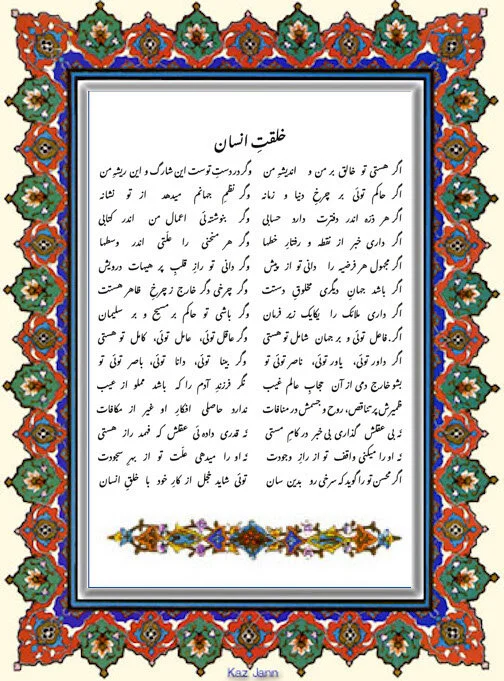 خلقتِ انسان
اگر هستی تو خالق بر من و اندیشهِ من وگر در دستِ توست این شارگ و این ریشهِ من
اگر حاکم توئی بر چرخِ دنیا و زمانه وگر نظمِ جهانم میدهد از تو نشانه
اگر هر ذره اندر دفترت دارد حسابی وگر بنوشته ئی اعمال من اندر کتابی
اگر داری خبر از نقطه و رفتارِ خطها وگر هر منحنی را علتی اندر وسطها
اگر مجهول هر فرضیه را دانی تو از پیش وگر دانی تو رازِ قلبِ پر هیهات درویش
اگر باشد جهانِ دیگری مخلوقِ دستت وگر چرخی دگر خارج ز چرخِ ظاهر هستت
اگر داری ملائک را یکایک زیر فرمان وگر باشی تو حاکم بر مسیح و بر سلیمان
اگر فاعل توئی و بر جهان شامل تو هستی وگر عاقل توئی، عامل توئی، کامل تو هستی
اگر داور توئی، یاور توئی، ناصر توئی تو وگر بینا توئی، دانا توئی، باصر توئی تو
بشو خارج دمی از آن حجابِ عالم غیب نگر فرزندِ آدم را که باشد مملو از عیب
ضمیرش پر تناقض، روح و جسمش در منافات ندارد حاصلی افکارِ او غیر از مکافات
نه بی عقلش گذاری بی خبر در کامِ مستی نه قدری داده ئی عقلش که فهمد رازِ هستی
نه او را میکنی واقف تو از رازِ وجودت نه او را میدهی علت تو از بهرِ سجودت
اگر محسن تو را گوید که سرخی رو بدین سان توئی شاید خجل از کارِ خود با خلقِ انسان
Kaz Jann